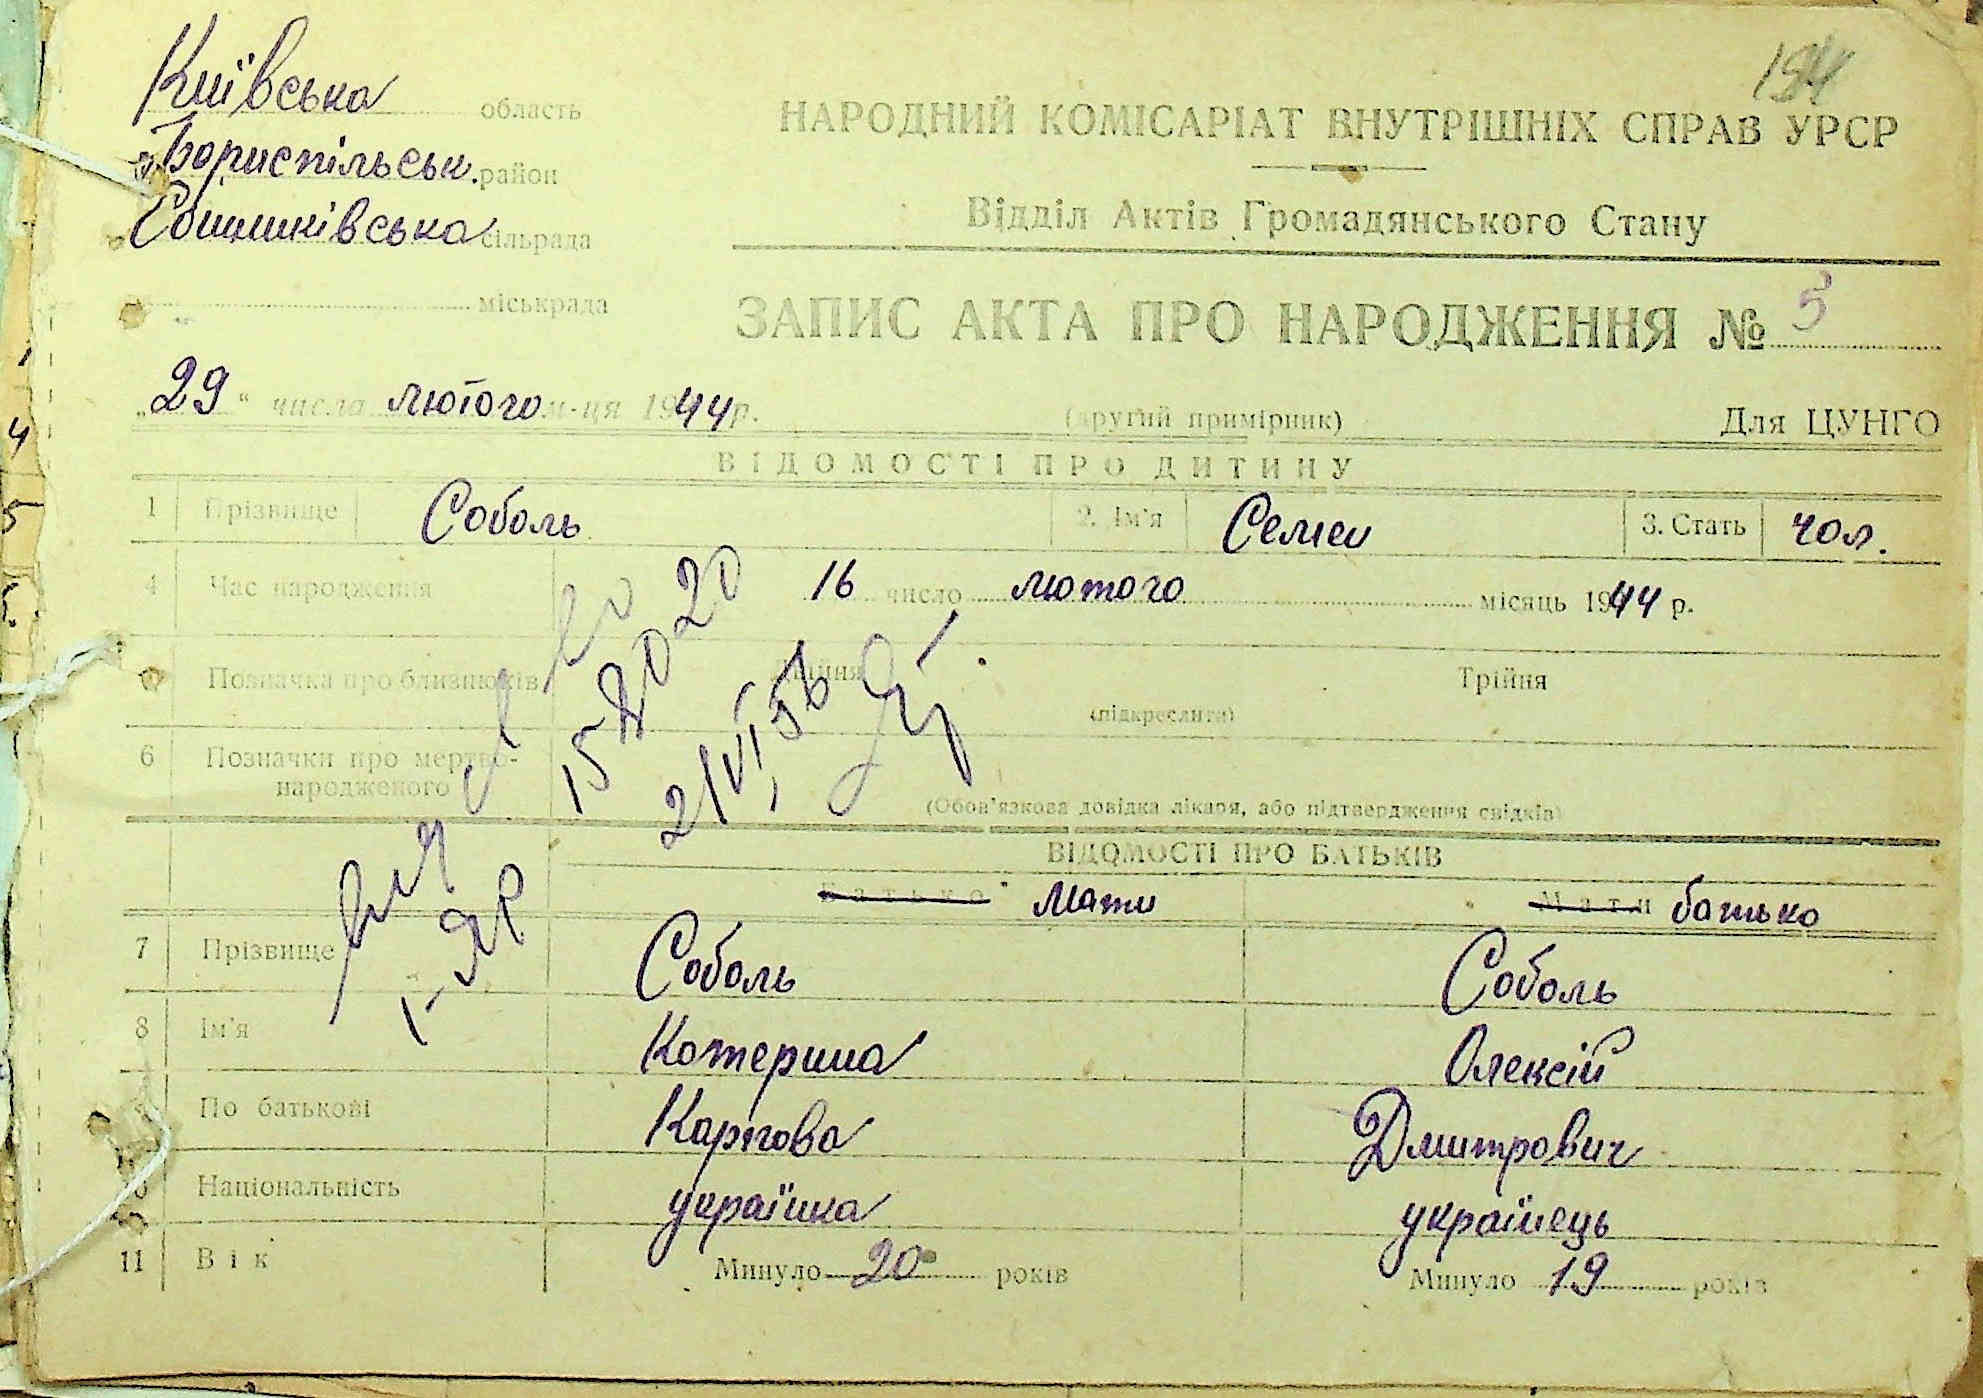 Київська область
Бориспільськ. район
Сошниківська сільрада
міськрада
184
НАРОДНИЙ КОМІСАРІАТ ВНУТРІШНІХ СПРАВ УРСР
Відділ Актів Громадянського Стану
ЗАПИС АКТА ПРО НАРОДЖЕННЯ № 5
„29“ числа лютого м-ця 1944 р.
(другий примірник) Для ЦУНГО
ВІДОМОСТІ ПРО ДИТИНУ
1 Прізвище Соболь 2. Ім'я Семен 3. Стать чол.
4 Час народження 16 число лютого місяць 1944 р.
Позначка про близнюків Двійня Трійня
(підкреслити)
6 Позначки про мертво-
народженого
(Обов'язкова довідка лікаря, або підтвердження свідків)
21/VI, 56
ВІДОМОСТІ ПРО БАТЬКІВ
Батько мати Мати батько
7 Прізвище Соболь Соболь
8 Ім'я Катерина Олексій
9 По батькові Карпова Дмитрович
10 Національність українка українець
11 Вік Минуло 20 років Минуло 19 років